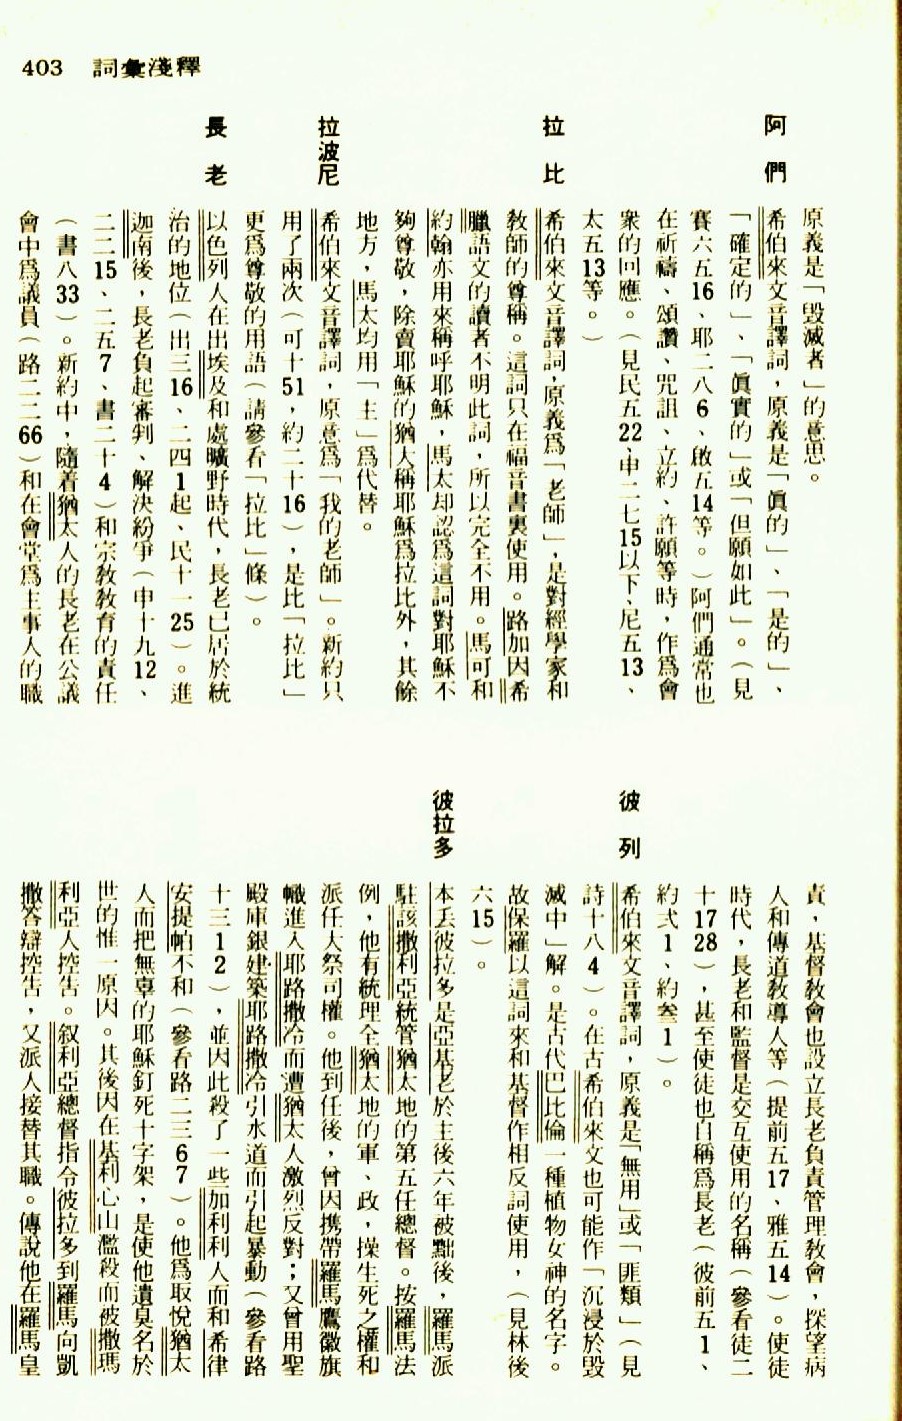 403　詞彙淺釋
原義是「毀滅者」的意思。
阿們　希伯來文音譯詞，原義是「眞的」、「是的」、
「確定的」、「眞實的」或「但願如此」。（見
賽六五16、耶二八6、啟五14等。）阿們通常也
在祈禱、頌讚、咒詛、立約、許願等時，作爲會
衆的回應。（見民五22、申二七15以下、尼五13、
太五13等。）
拉比　希伯來文音譯詞，原義爲「老師」，是對經學家和
教師的尊稱。這詞只在福音書裏使用。路加因希
臘語文的讀者不明此詞，所以完全不用。馬可和
約翰亦用來稱呼耶穌，馬太却認爲這詞對耶穌不
夠尊敬，除賣耶穌的猶大稱耶穌爲拉比外，其餘
地方，馬太均用「主」爲代替。
拉波尼　希伯來文音譯詞，原意爲「我的老師」。新約只
用了兩次（可十51，約二十16），是比「拉比」
更爲尊敬的用語（請參看「拉比」條）。
長老　以色列人在出埃及和處曠野時代，長老已居於統
治的地位（出三16、二四1起、民十一25）。進
迦南後，長老負起審判、解決紛爭（申十九12、
二二15、二五7、書二十4）和宗教教育的責任
（書八33）。新約中，隨着猶太人的長老在公議
會中爲議員（路二二66）和在會堂爲主事人的職
責，基督教會也設立長老負責管理教會，探望病
人和傳道教導人等（提前五17、雅五14）。使徒
時代，長老和監督是交互使用的名稱（參看徒二
十17 28），甚至使徒也自稱爲長老（彼前五1、
約弍1、約叁1）。
彼列　希伯來文音譯詞，原義是「無用」或「匪類」（見
詩十八4）。在古希伯來文也可能作「沉浸於毀
滅中」解。是古代巴比倫一種植物女神的名字。
故保羅以這詞來和基督作相反詞使用，（見林後
六15）。
彼拉多　本丢彼拉多是亞基老於主後六年被黜後，羅馬派
駐該撒利亞統管猶太地的第五任總督。按羅馬法
例，他有統理全猶太地的軍、政，操生死之權和
派任大祭司權。他到任後，曾因携帶羅馬鷹徽旗
幟進入耶路撒冷而遭猶太人激烈反對；又曾用聖
殿庫銀建築耶路撒冷引水道而引起暴動（參看路
十三1 2），並因此殺了一些加利利人而和希律
安提帕不和（參看路二三6 7）。他爲取悅猶太
人而把無辜的耶穌釘死十字架，是使他遺臭名於
世的惟一原因。其後因在基利心山濫殺而被撒瑪
利亞人控告。叙利亞總督指令彼拉多到羅馬向凱
撒答辯控告，又派人接替其職。傳說他在羅馬皇